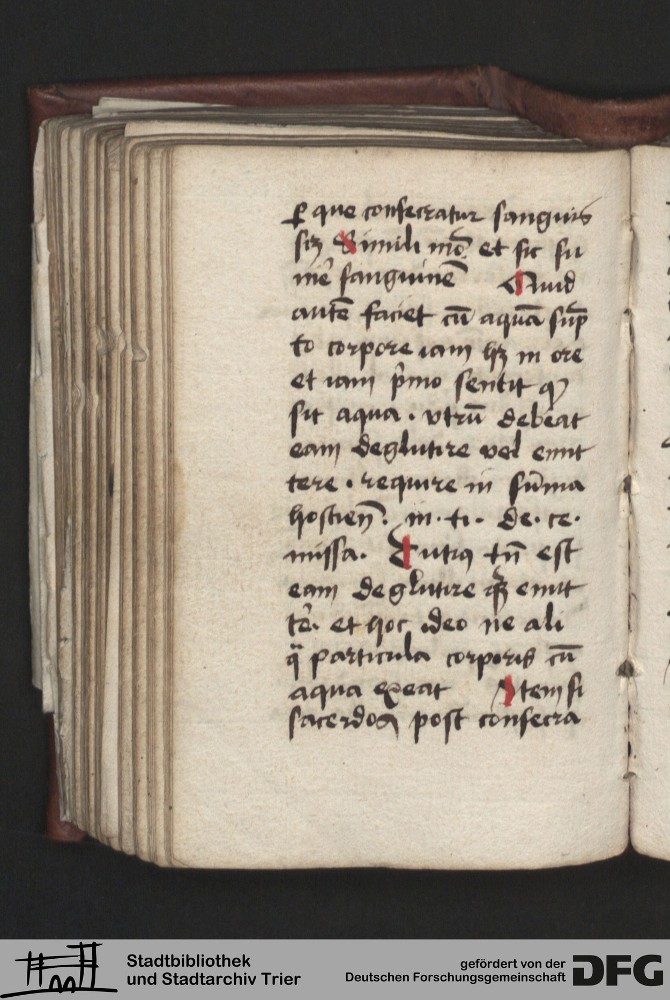 ꝑ que consecratur sanguis
sꝫ Simili mō et sic su
mē sanguinē Quid
autē faciet cū aquā sūp
to corpore iam hꝫ in ore
et iam p̄mo sentit ꝙ
sit aqua · vtrū debeat
eam deglutire vel emit
tere · require in sūma
hostieñ · in · ti · de · ce ·
missa · Tutiꝰ tn̄ est
eam deglutire ꝙ̄ emit
tē · et hoc ideo ne ali
qͣ particula corporis cū
aqua exeat Item si
sacerdos post consecra
Stadtbibliothek
und Stadtarchiv Trier
gefördert von der
Deutschen Forschungsgemeinschaft
DFG